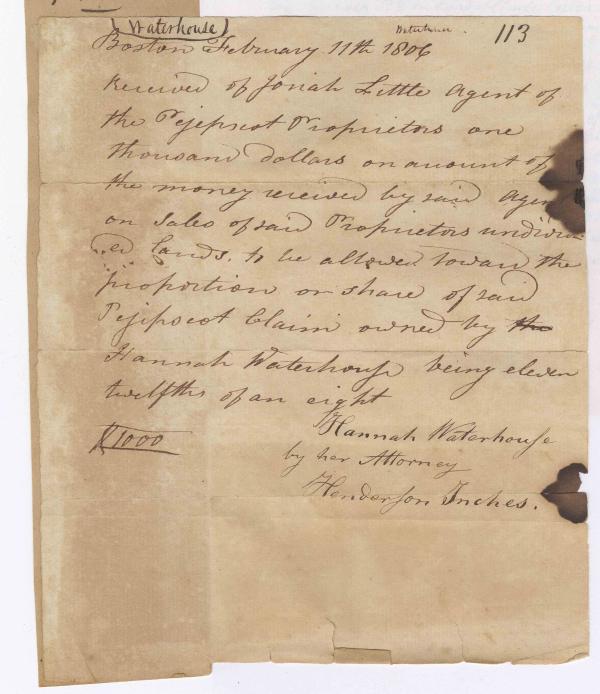 (Waterhouse) Waterhouse. 113
Boston February 11th 1806
Received of Josiah Little Agent of
the Pejepscot Proprietors one
thousand dollars on account of
the money received by said Agen
on sales of said Proprietors undivid
ed lands. to be allowed toward the
proportion or share of said
Pejepscot Claim owned by the
Hannah Waterhouse being eleven
twelfths of an eight
$1000
Hannah Waterhouse
by her Attorney
Henderson Inches.